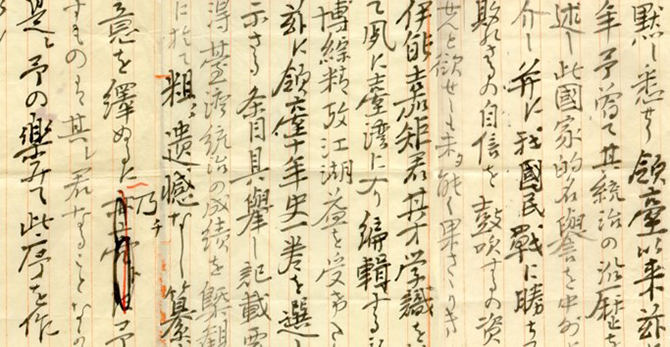 黙し悉せり領臺以来茲
年予嘗て其統治の沿歴を
述し此國家的名譽を中外に
介し并に我國民戰に勝ち
敗れさるの自信を鼓吹するの資
せんと欲せしも未能く果さゝりき
伊能嘉矩君其才学識を
て夙に臺灣に入り編輯する
博綜精攷江湖益を受
茲に領臺十年史一巻を選
示さる条目具擧し記載要
得臺灣統治の成績を槩観
に於て粗遺憾なし纂
意を繹ぬるに乃チ予
すもの其し君なることなの
是予の樂みて此序を作